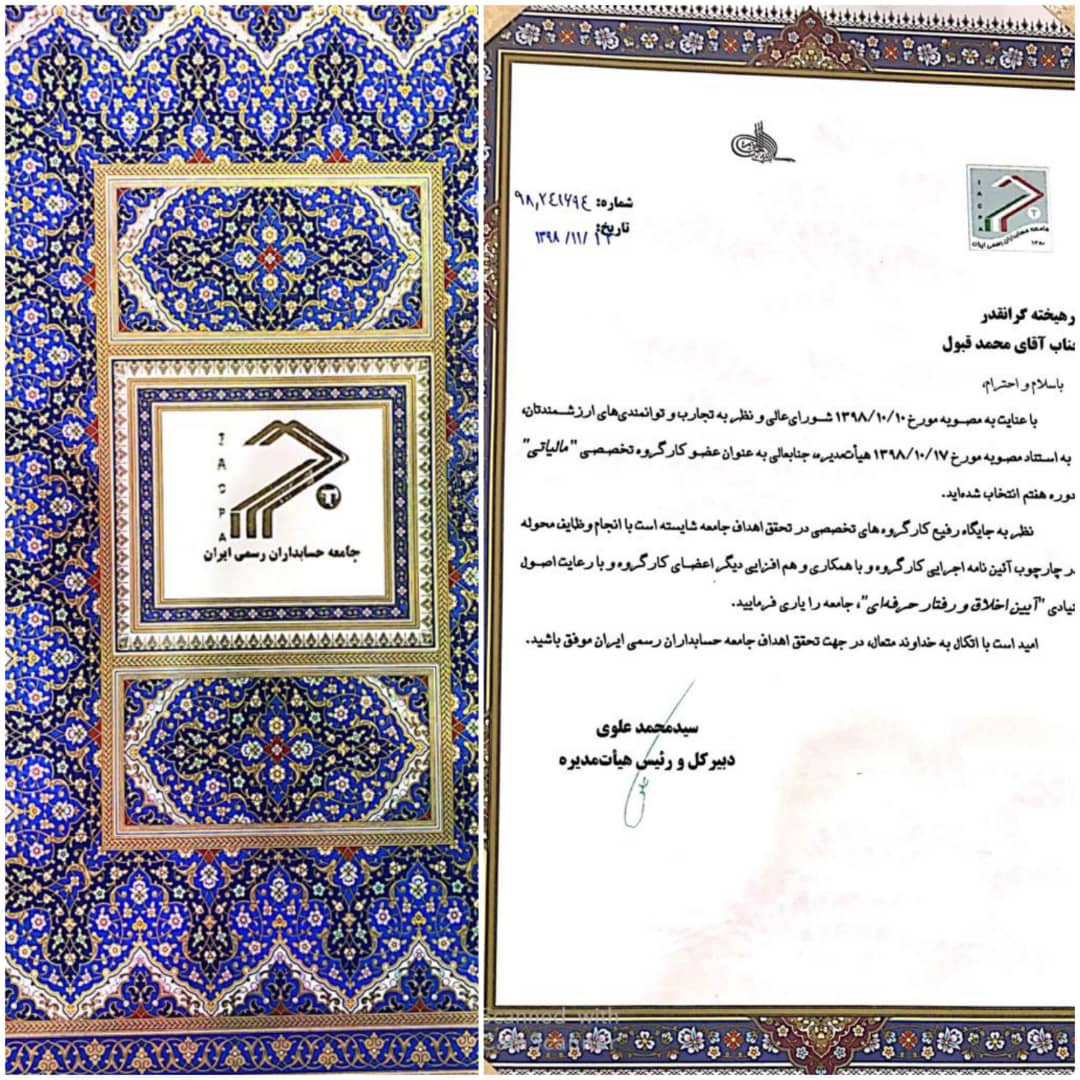 I
A
C
P
A
جامعه حسابداران رسمی ایران
شماره: ۹۸,۲۴۱۷۹۴
تاریخ: /۱۱/ ۱۳۹۸
I A C P A
جامعه حسابداران رسمی ایران
۱۳۸۰
رهیخته گرانقدر
جناب آقای محمد قبول
باسلام و احترام،
با عنایت به مصوبه مورخ ۱۳۹۸/۱۰/۱۰ شورای عالی و نظر به تجارب و توانمندی‌های ارزشمندتان،
به استناد مصوبه مورخ ۱۳۹۸/۱۰/۱۷ هیأت‌مدیره، جنابعالی به عنوان عضو کارگروه تخصصی "مالیاتی"
دوره هفتم انتخاب شده‌اید.
نظر به جایگاه رفیع کارگروه های تخصصی در تحقق اهداف جامعه شایسته است با انجام وظایف محوله
در چارچوب آئین نامه اجرایی کارگروه و با همکاری و هم افزایی دیگر اعضای کارگروه و با رعایت اصول
نیادی "آیین اخلاق و رفتار حرفه‌ای"، جامعه را یاری فرمایید.
امید است با اتکال به خداوند متعال، در جهت تحقق اهداف جامعه حسابداران رسمی ایران موفق باشید.
سیدمحمد علوی
دبیرکل و رئیس هیأت‌مدیره
canned with